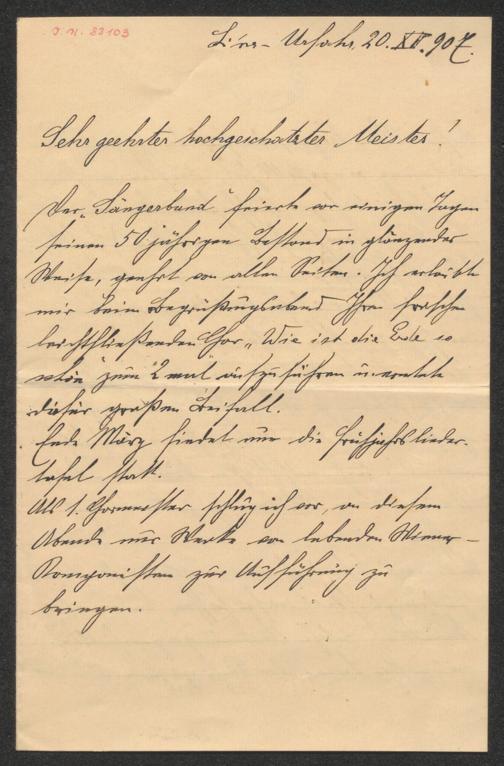 J. N. 83103
Linz-Urfahr, 20. XII. 907.
Sehr geehrter hochgeschätzter Meister!
Der „Sängerbund" feierte vor einigen Tagen
seinen 50 jährigen Bestand in glänzender
Weise, geehrt von allen Seiten. Ich erlaubte
mir beim Begrüßungsabend Ihren frischen
leichtfließenden Chor „Wie ist die Erde so
schön" zum 2 mal aufzuführen u. erntete
dafür großen Beifall.
Ende März findet nun die Frühjahrslieder-
tafel statt.
Als 1. Chormeister schlug ich vor, an diesem
Abende nur Werke von lebenden Wiener-
Komponisten zur Aufführung zu
bringen.